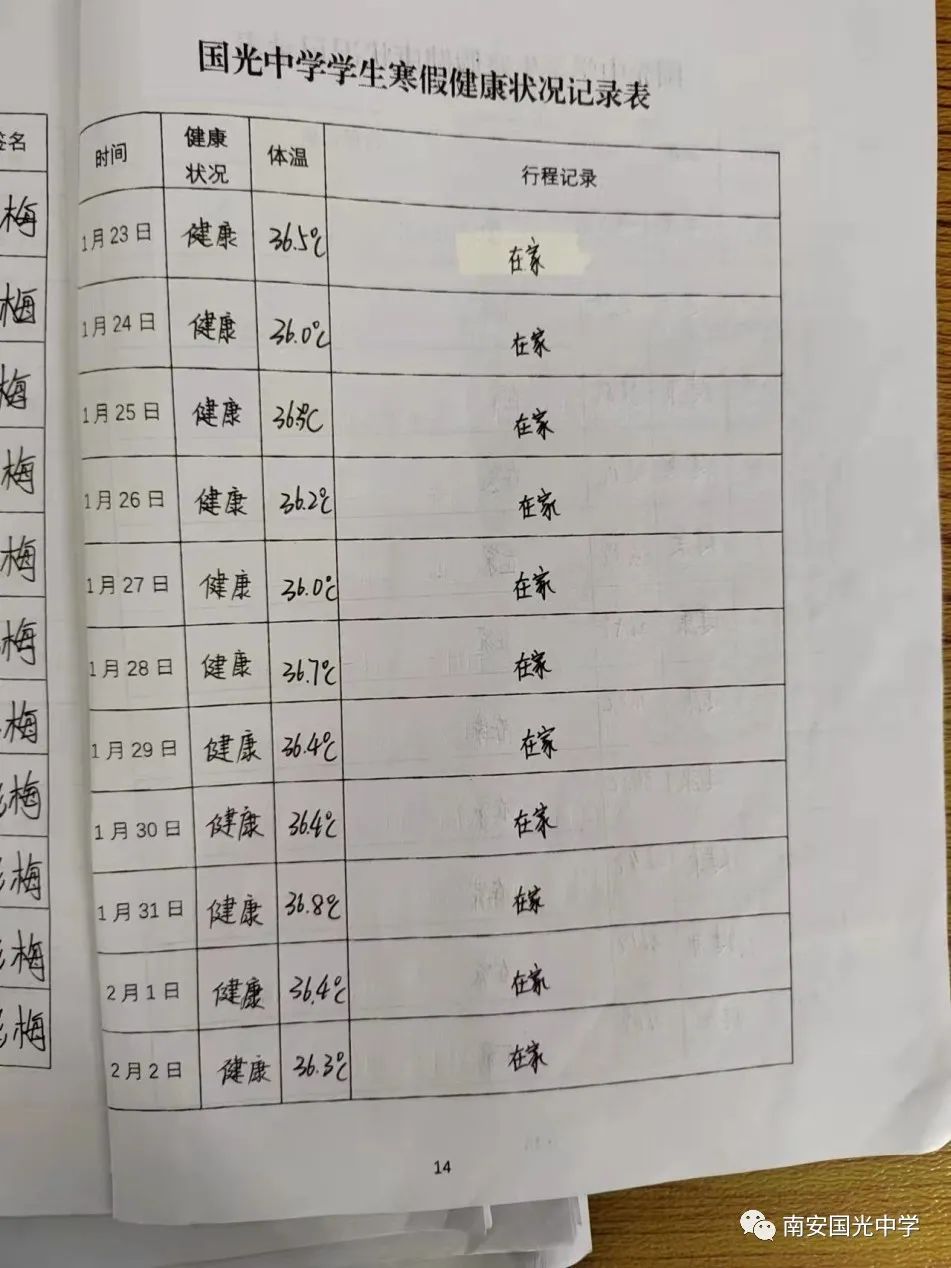 国光中学学生寒假健康状况记录表
签名
梅
梅
梅
梅
梅
梅
梅
梅
梅
梅
梅
时间 健康状况 体温 行程记录
1月23日 健康 36.5℃ 在家
1月24日 健康 36.0℃ 在家
1月25日 健康 在家
1月26日 健康 36.2℃ 在家
1月27日 健康 36.0℃ 在家
1月28日 健康 36.7℃ 在家
1月29日 健康 36.4℃ 在家
1月30日 健康 36.4℃ 在家
1月31日 健康 36.8℃ 在家
2月1日 健康 36.4℃ 在家
2月2日 健康 36.3℃ 在家
14
南安国光中学